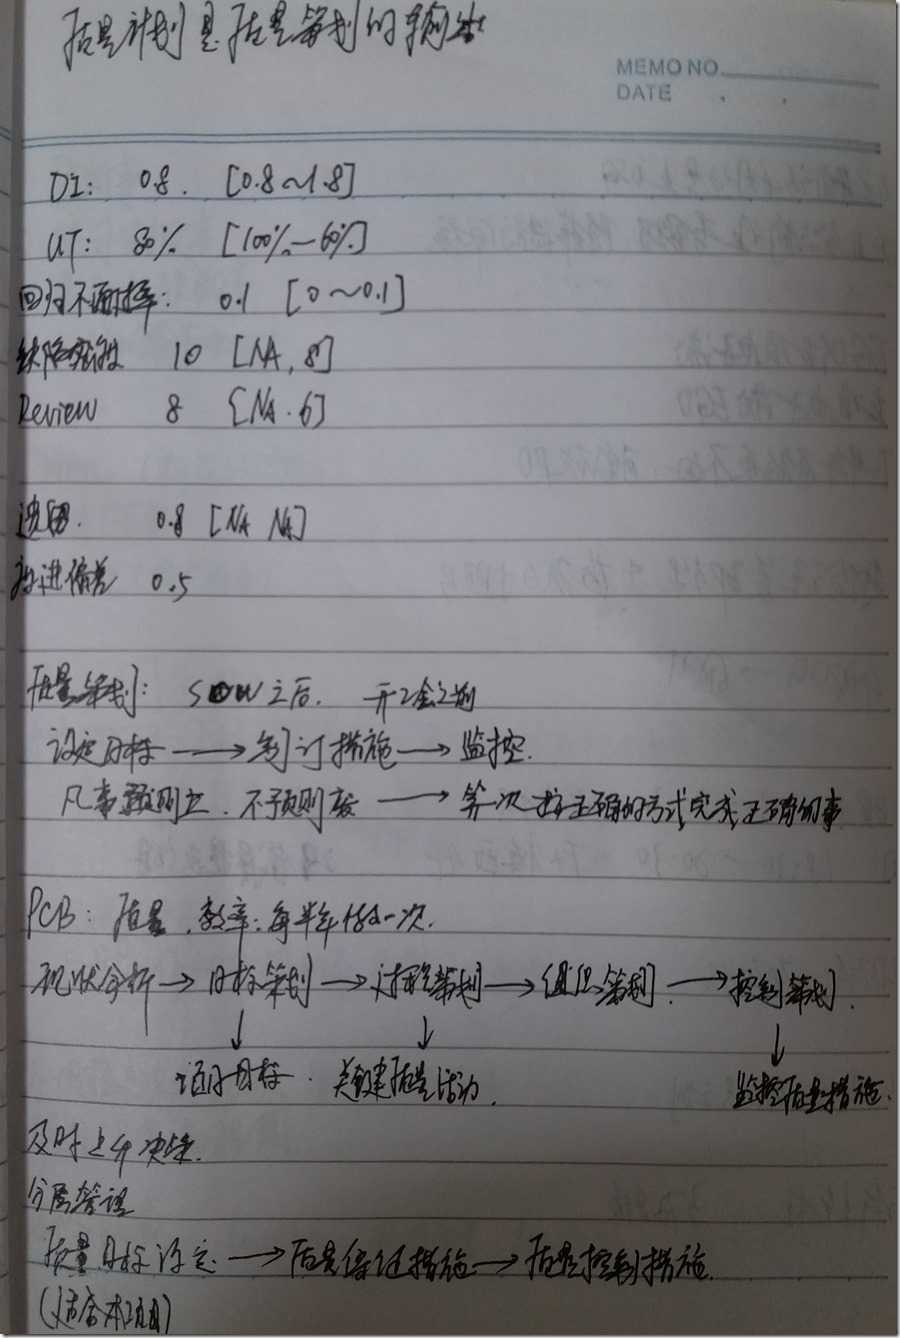 质量计划是质量策划的输出
MEMO NO.
DATE . .
DI: 0.8. [0.8~1.8]
UT: 80% [100%-60%]
回归不通过率: 0.1 [0~0.1]
缺陷密度 10 [NA, 8]
Review 8 [NA. 6]
遗留. 0.8 [NA NA]
偏差 0.5
质量策划: SOW之后. 开工会之前
设定目标 → 制订措施 → 监控.
凡事预则立. 不预则废 → 第一次按正确的方式完成正确的事
PCB: 质量. 效率: 每半年 一次.
现状分析 → 目标策划 → 过程策划 → 组织策划. → 控制策划.
项目目标. 关键质量活动. 监控质量措施.
及时上升决策.
分层管理
质量目标设定 → 质量保证措施 → 质量控制措施.
(适合本项目)